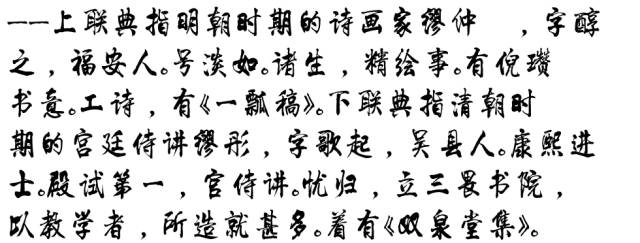 ——上联典指明朝时期的诗画家缪仲 ，字醇
之，福安人。号淡如。诸生，精绘事。有倪瓒
书意。工诗，有《一瓢稿》。下联典指清朝时
期的宫廷侍讲缪彤，字歌起，吴县人。康熙进
士。殿试第一，官侍讲。忧归，立三畏书院，
以教学者，所造就甚多。着有《双泉堂集》。